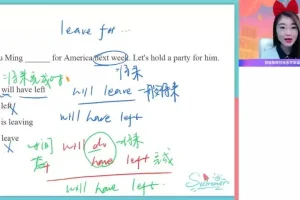 leave for ...
u Ming ______ for America next week. Let's hold a party for him.
=将来完成时
will have left
将来
will leave → 一般将来
left
will have left
is leaving
leave
时间
will do → 将来
have left 完成
will have left.
Summer